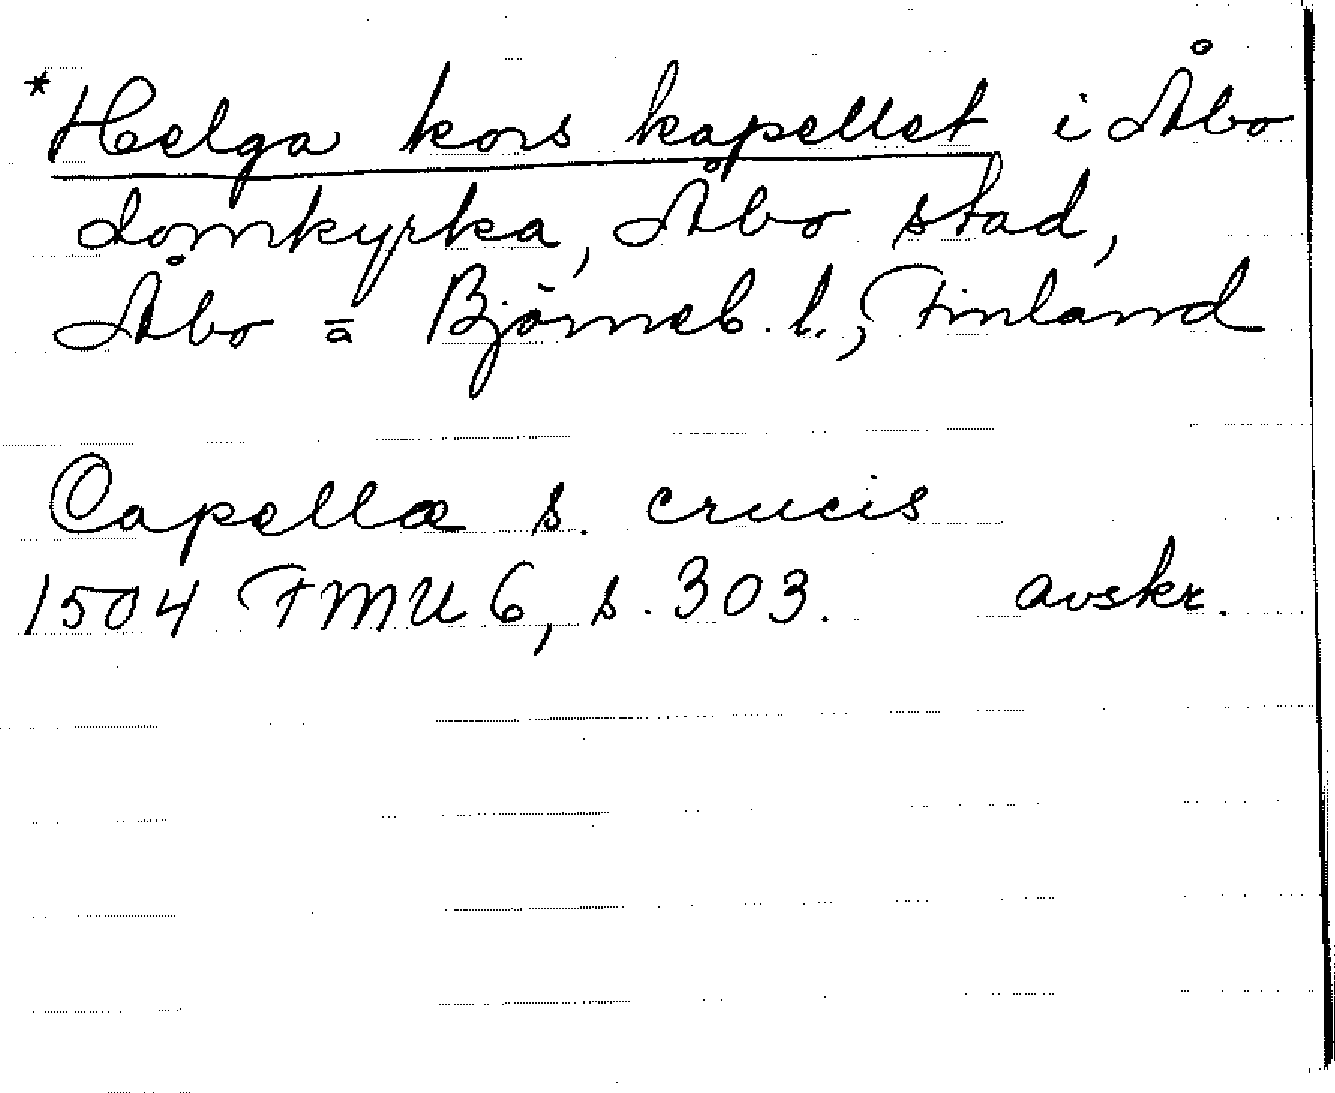 *Helga kors kapellet i Åbo
domkyrka, Åbo stad,
Åbo a Björneb. l., Finland
Capellæ s. crucis
1504 FMU 6, s. 303. avskr.